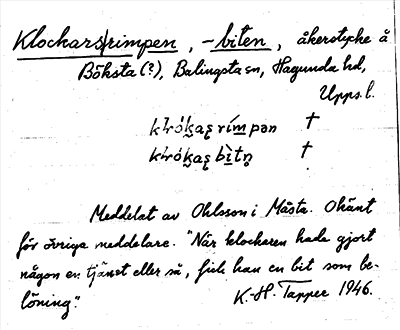 Klockarsrimpen, -biten, åkerstycke å
Böksta (?), Balingsta sn, Hagunda hd,
Upps. l.
rímpən †
bìtn̥ †
Meddelat av Ohlsson i Måsta. Okänt
för övriga meddelare. "När klockaren hade gjort
någon en tjänst eller så, fick han en bit som be-
löning."
K.-H. Tapper 1946.